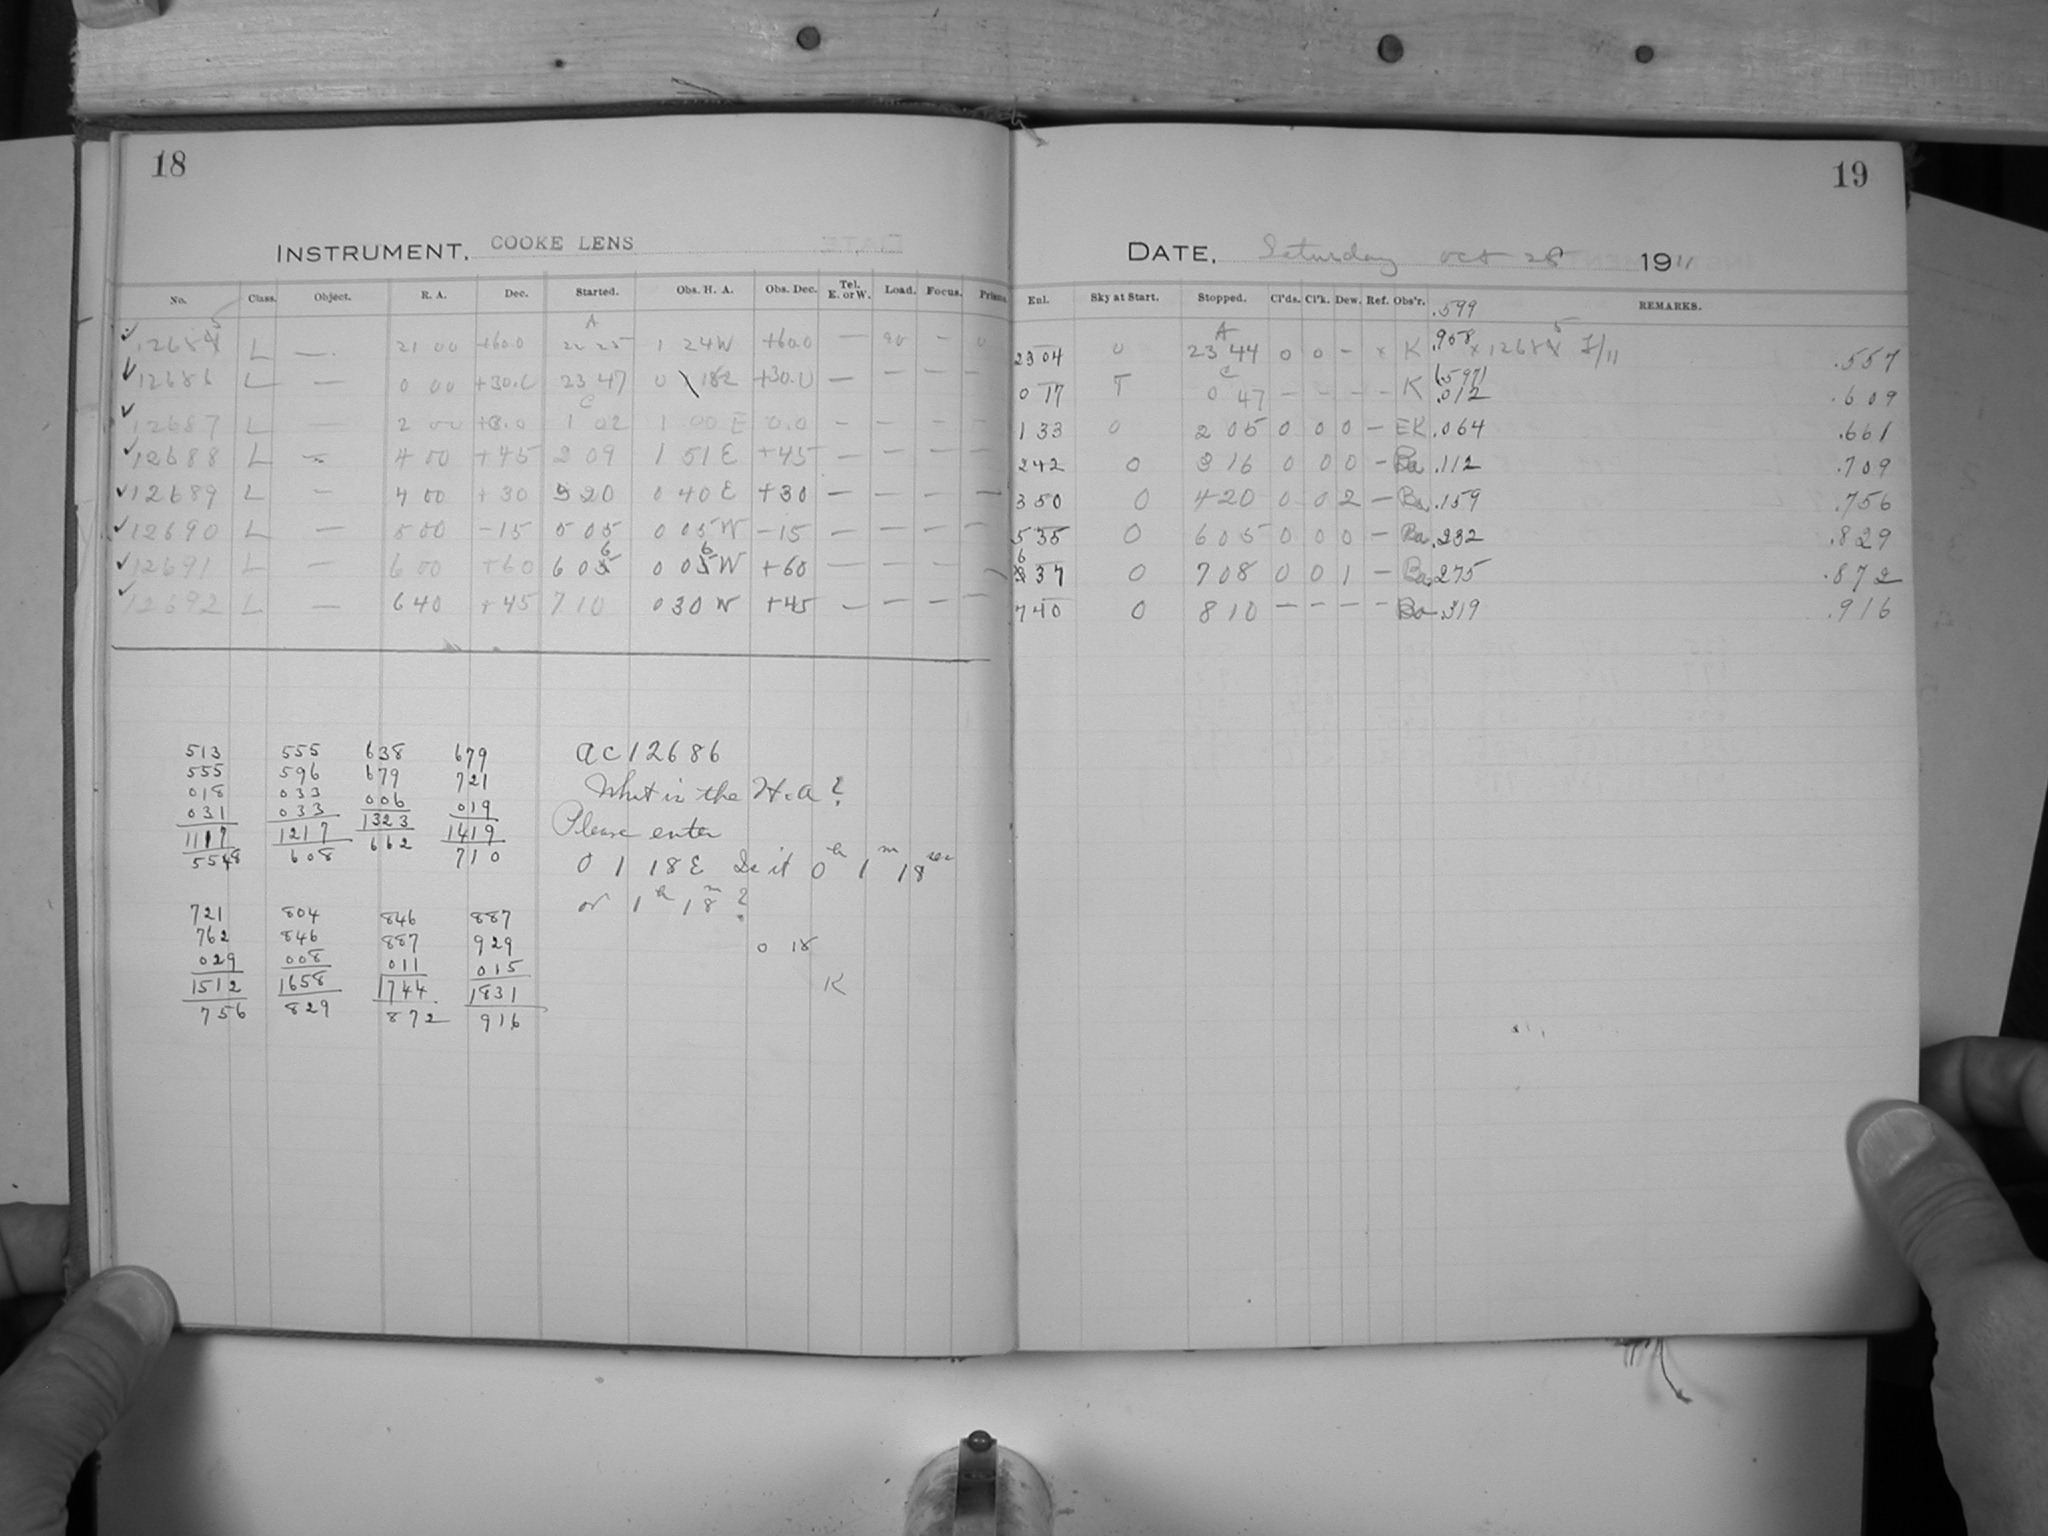 18
INSTRUMENT. COOKE LENS
No. Class. Object. R. A. Dec. Started. Obs. H. A. Obs. Dec. Tel. E. or W. Load. Focus. Prism.
A
12685 L — 21 00 +60.0 22 25 1 24W +60.0 — 90 — 0
12686 L — 0 00 +30.0 23 47 0 182 +30.0 — — — —
C
12687 L — 2 00 +0.0 1 02 1 00 E 0.0 — — — —
12688 L — 4 00 +45 2 09 1 51 E +45 — — — —
12689 L — 4 00 +30 3 20 0 40 E +30 — — — —
12690 L — 5 00 -15 5 05 0 05 W -15 — — — —
12691 L — 6 00 +60 6 06 0 06 W +60 — — — —
12692 L — 6 40 +45 7 10 0 30 W +45 — — — —
513 555 638 679
555 596 679 721
018 033 006 019
031 033 1323 1419
1117 1217 662 710
5548 608
721 804 846 887
762 846 887 929
029 008 011 015
1512 1658 1744 1831
756 829 872 916
AC12686
What is the H.A?
Please enter
0 1 18E Is it 0h 1m 18sec
or 1h 18m?
0 18
K
19
DATE. Saturday Oct 28 1911
Enl. Sky at Start. Stopped. Cl'ds. Cl'k. Dew. Ref. Obs'r. REMARKS.
.599
A
23 04 0 23 44 0 0 - x K .958 x 12685 F/11 .557
C
(.597)
0 17 T 0 47 - - - - K .012 .609
1 33 0 2 05 0 0 0 - EK .064 .661
2 42 0 3 16 0 0 0 - Ba .112 .709
3 50 0 4 20 0 0 2 - Ba .159 .756
5 35 0 6 05 0 0 0 - Ba .232 .829
6 37 0 7 08 0 0 1 - Ba .275 .872
7 40 0 8 10 - - - - Ba .319 .916